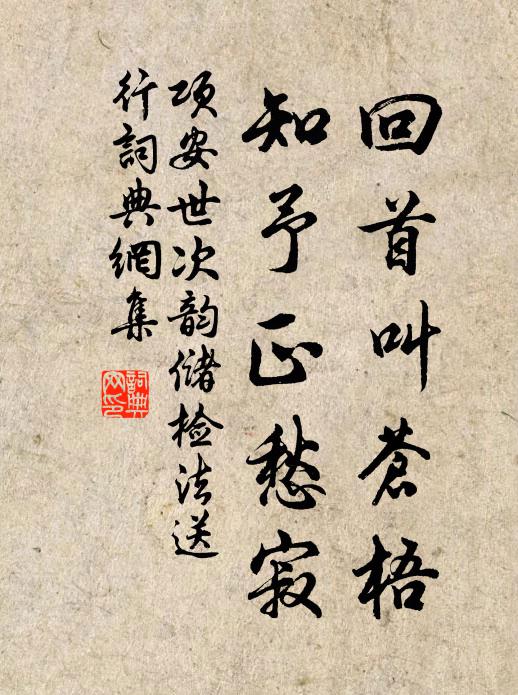 回首叫蒼梧
知予正愁寂
项安世次韵储检法送
行詞典網集
詞典
网印